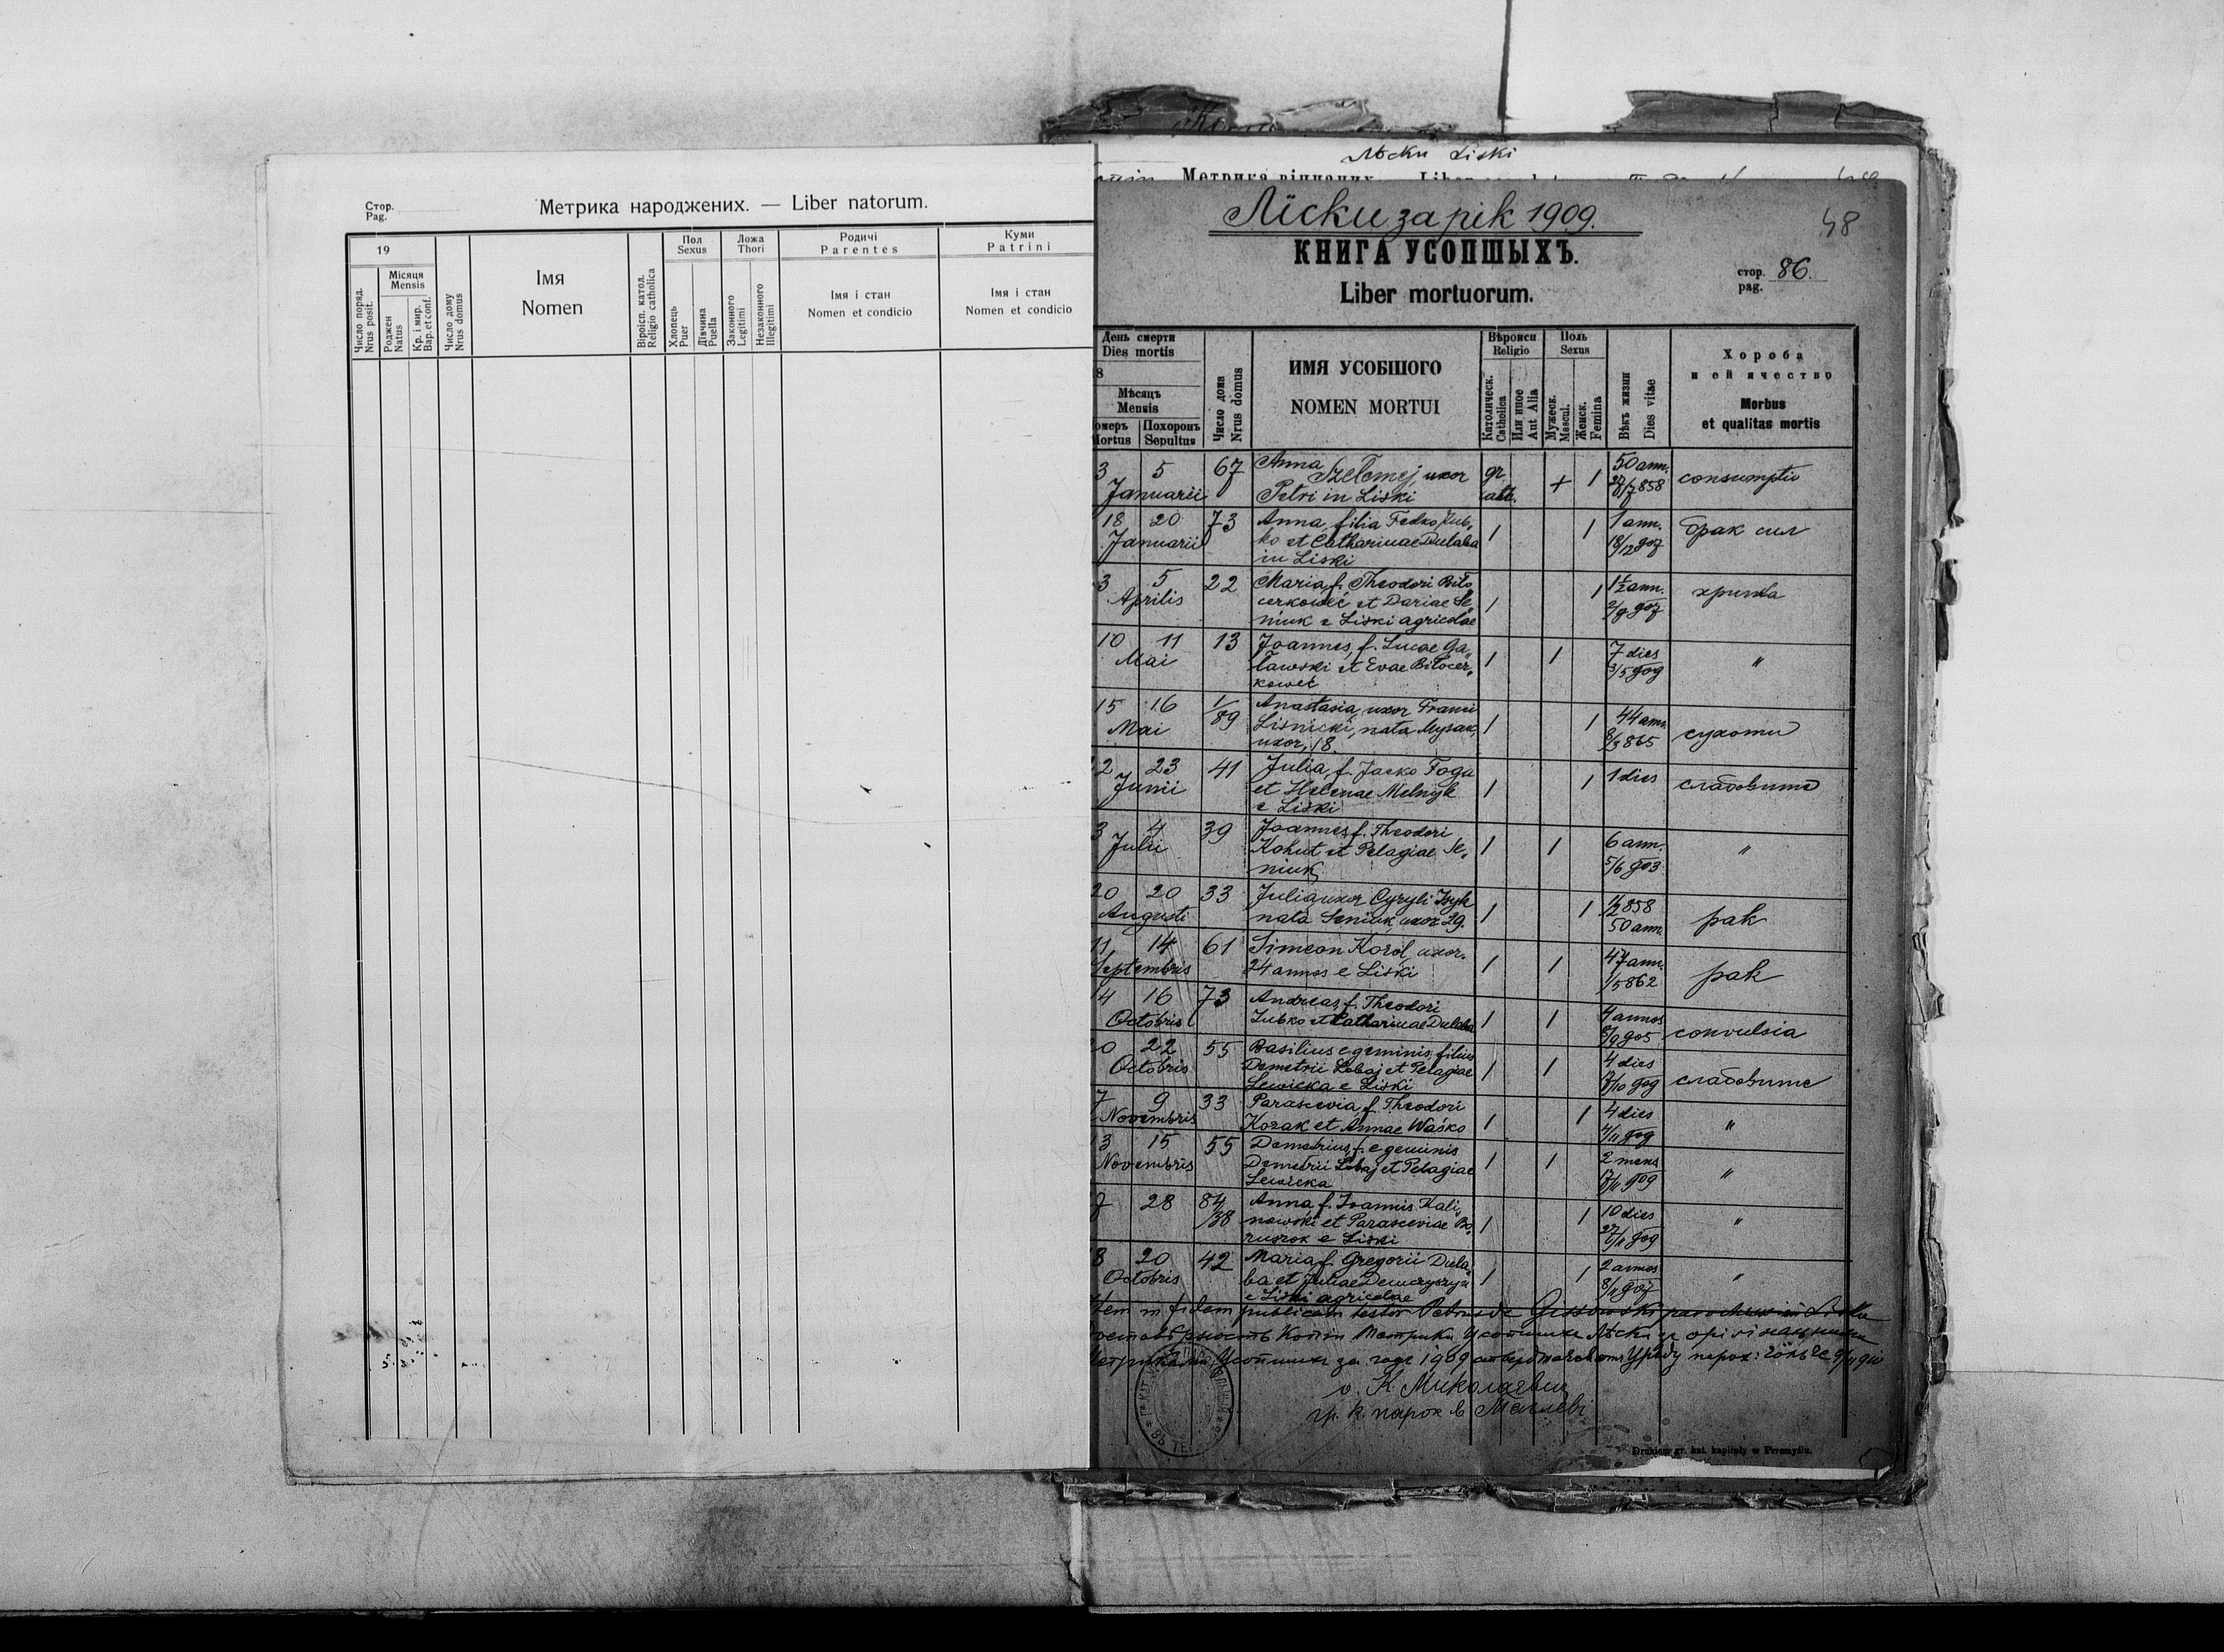 Стор.
Pag.
Метрика народжених. — Liber natorum.
19
Число поряд.
Nrus posit.
Місяця
Mensis
Роджен
Natus
Кр. і мир.
Bap. et conf.
Число дому
Nrus domus
Імя
Nomen
Віроісп. катод.
Religio catholica
Пол
Sexus
Хлопець
Puer
Дівчина
Puella
Ложа
Thori
Законного
Legitimi
Незаконного
Illegitimi
Родичі
Parentes
Імя і стан
Nomen et condicio
Куми
Patrini
Імя і стан
Nomen et condicio
Лѣски Liski
Метрика вінчаних
Ліски за рік 1909.
48
КНИГА УСОПШЫХЪ.
Liber mortuorum.
стор.
pag. 86.
День смерти
Dies mortis
8
Мѣсяцъ
Mensis
омеръ
Mortus
Похоронъ
Sepultus
Число дома
Nrus domus
ИМЯ УСОБШОГО
NOMEN MORTUI
Вѣроисп
Religio
Католическ.
Catholica
Или иное
Aut Alia
Поль
Sexus
Мужеск.
Mascul.
Женск.
Femina
Вѣкъ жизни
Dies vitae
Хороба
и ей ячество
Morbus
et qualitas mortis
3 5 67 Anna Szelemej, uxor gr. + 1 50 ann. consumptio
Januarii Petri in Liski cath. 858
18 20 73 Anna, filia Fedko Zub- 1 1 1 ann. брак сил
Januarii ko et Catharinae Dulaba 18/12 907
in Liski
3 5 22 Maria, f. Theodori Biło 1 1 1½ ann. хрипка
Aprilis cerkoweć et Dariae Se 907
niuk e Liski agricolae
10 11 13 Joannes, f. Lucae Ga- 1 1 7 dies "
Mai ławski et Evae Biłocer- 3/5 909
koweć
15 16 1/89 Anastasia, uxor Franci 1 1 44 ann. сухоти
Mai Lisnicki, nata Mysak, 8/3 865
uxor, 18.
2 23 41 Julia, f. Jacko Foga 1 1 1 dies слабовите
Junii et Helenae Melnyk
e Liski
3 4 39 Joannes, f. Theodori 1 1 6 ann. "
Julii Kohut et Pelagiae Se- 5/6 903
niuk
20 20 33 Julia, uxor Cyryli 1 1 858 рак
Augusti nata Seniuk, uxor 29. 50 ann.
11 14 61 Simeon Koról, uxor. 1 1 47 ann. рак
Septembris 24 annos e Liski 1/5 862
14 16 73 Andreas, f. Theodori 1 1 4 annos convulsia
Octobris Zubko et Catharinae Dulaba 8/9 905
0 22 55 Basilius e geminis, filius 1 1 4 dies слабовите
Octobris Demetrii Lobaj et Pelagiae /10 909
Lewicka e Liski
7 9 33 Parascevia, f. Theodori 1 1 4 dies "
Novembris Kozak et Annae Waśko 4/11 909
13 15 55 Demetrius, f. e geminis 1 1 2 mens "
Novembris Demetrii Lobaj et Pelagiae 909
Lewicka
7 28 84/38 Anna f. Joannis Kali- 1 1 10 dies "
nowski et Parasceviae Bo- 909
ruszok e Liski
8 20 42 Maria f. Gregorii Dula 1 1 2 annos "
Octobris ba et Juliae Demczyszyn 8/11 907
e Liski agricolae
in fidem publicam testor Petrus de Gissowski parochus in Liski
Копіи Метрики Усопших Лѣски
Метриками Усопших за годе 1909
о. К. Миколаевич
гр. к. парох в
Drukiem gr. kat. kapituły w Przemyślu.